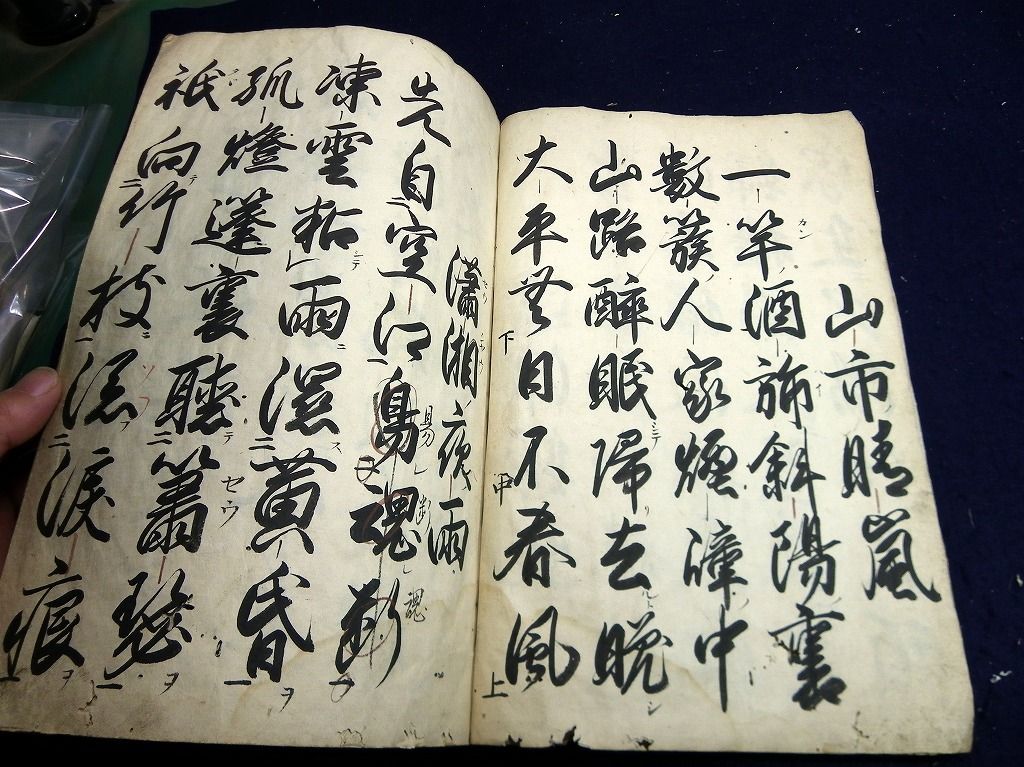 山市晴嵐
一竿酒旆斜陽裏
數簇人家煙嶂中
山路醉眠歸去晩
大平無日不春風
瀟湘夜雨
先自空江易魂斷
凍雲粘雨濕黄昏
孤燈蓬裏聽簫瑟
祇向竹枝添淚痕